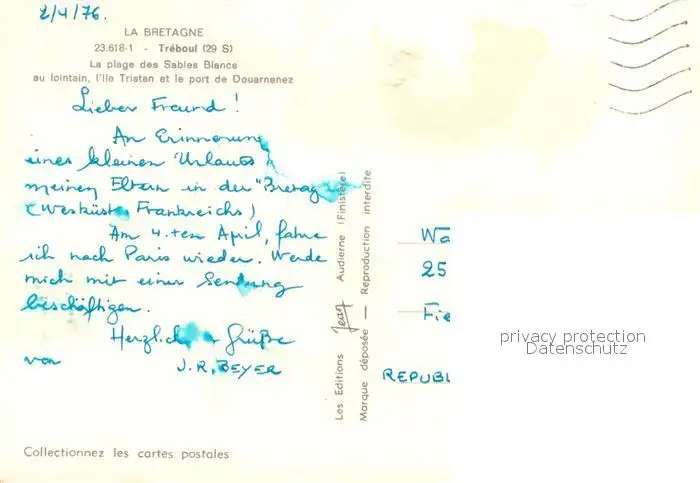 2/4/76.
LA BRETAGNE
23.618-1 - Tréboul (29 S)
La plage des Sables Blancs
au lointain, l'Ile Tristan et le port de Douarnenez
Lieber Freund!
An Erinnerung
eines kleinen Urlaubs
meinen Eltern in der "Bretag
(Westküste Frankreichs)
Am 4.ten April, fahre
ich nach Paris wieder. Werde
mich mit einer Sendung
beschäftigen.
Herzliche Grüße
von J.R. BEYER
Collectionnez les cartes postales
Les Editions Jean Audierne (Finistère)
Marque déposée — Reproduction interdite
Wa
25
Fie
REPUBL
privacy protection
Datenschutz